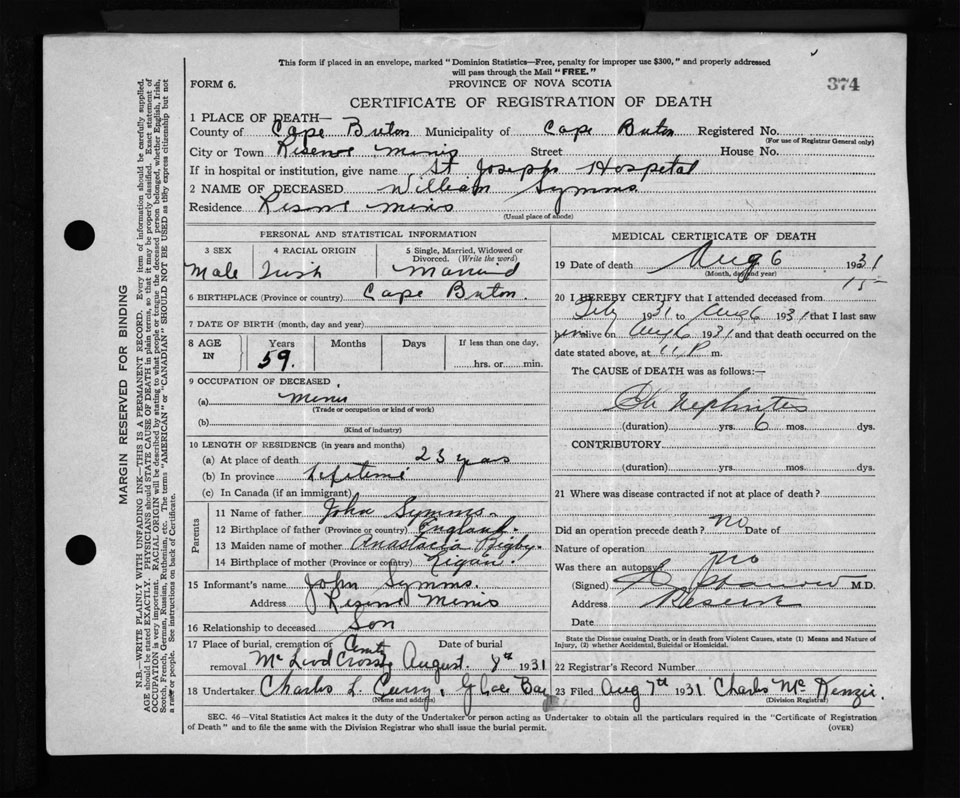 This form if placed in an envelope, marked "Dominion Statistics—Free, penalty for improper use $300," and properly addressed
will pass through the Mail "FREE."
374
FORM 6.
PROVINCE OF NOVA SCOTIA
CERTIFICATE OF REGISTRATION OF DEATH
MARGIN RESERVED FOR BINDING
N.B.—WRITE PLAINLY WITH UNFADING INK—THIS IS A PERMANENT RECORD. Every item of information should be carefully supplied.
AGE should be stated EXACTLY. PHYSICIANS should STATE CAUSE OF DEATH in plain terms, so that it may be properly classified. Exact statement of
OCCUPATION is very important. RACIAL ORIGIN will be described by stating to what people or tongue the deceased person belonged, whether English, Irish,
Scotch, French, German, Russian, Ruthenian, etc. The terms "AMERICAN" or "CANADIAN" SHOULD NOT BE USED as they express citizenship but not
a race or people. See instructions on back of Certificate.
1 PLACE OF DEATH—
County of Cape Breton Municipality of Cape Breton Registered No.
(For use of Registrar General only)
City or Town Reserve Mines Street House No.
If in hospital or institution, give name St Josephs Hospital
2 NAME OF DECEASED William Symms
Residence Reserve Mines
(Usual place of abode)
PERSONAL AND STATISTICAL INFORMATION
3 SEX 4 RACIAL ORIGIN 5 Single, Married, Widowed or
Divorced. (Write the word)
Male Irish Married
6 BIRTHPLACE (Province or country) Cape Breton.
7 DATE OF BIRTH (month, day and year)
8 AGE IN Years Months Days If less than one day,
59. hrs. or min.
9 OCCUPATION OF DECEASED
(a) Miner
(Trade or occupation or kind of work)
(b)
(Kind of industry)
10 LENGTH OF RESIDENCE (in years and months)
(a) At place of death 23 years
(b) In province Lifetime
(c) In Canada (if an immigrant)
Parents
11 Name of father John Symms.
12 Birthplace of father (Province or country) England.
13 Maiden name of mother Anastacia Rigby.
14 Birthplace of mother (Province or country)
15 Informant's name John Symms.
Address Reserve Mines
16 Relationship to deceased Son
17 Place of burial, cremation or Date of burial
removal McLeod Crossg August. 8th 1931
18 Undertaker Charles L. Curry, Glace Bay
(Name and address)
MEDICAL CERTIFICATE OF DEATH
19 Date of death Aug 6 1931
(Month, day and year)
15
20 I HEREBY CERTIFY that I attended deceased from
1931 to Aug 6 1931 that I last saw
him alive on Aug 6 1931 and that death occurred on the
date stated above, at 11 P m.
The CAUSE of DEATH was as follows:—
Ch Nephritis
(duration) yrs. 6 mos. dys.
CONTRIBUTORY
(duration) yrs. mos. dys.
21 Where was disease contracted if not at place of death?
Did an operation precede death? no Date of
Nature of operation
Was there an autopsy? no
(Signed) M.D.
Address Reserve
Date
State the Disease causing Death, or in death from Violent Causes, state (1) Means and Nature of
Injury, (2) whether Accidental, Suicidal or Homicidal.
22 Registrar's Record Number
23 Filed Aug 7th 1931 Charles McKenzie.
(Division Registrar)
SEC. 46—Vital Statistics Act makes it the duty of the Undertaker or person acting as Undertaker to obtain all the particulars required in the "Certificate of Registration
of Death" and to file the same with the Division Registrar who shall issue the burial permit.
(OVER)